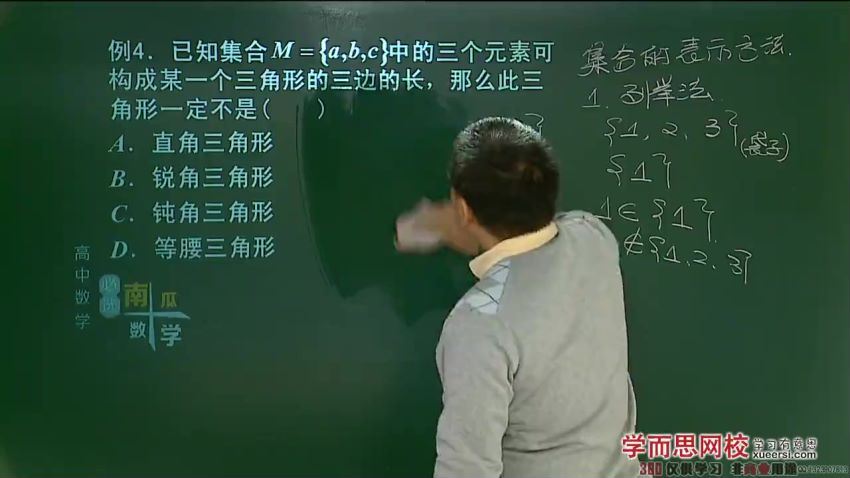 例4．已知集合M={a,b,c}中的三个元素可
构成某一个三角形的三边的长，那么此三
角形一定不是(　　)
A．直角三角形
B．锐角三角形
C．钝角三角形
D．等腰三角形
高中数学
南瓜
数学
集合的表示方法.
1. 列举法
{1, 2, 3}
{1}
1∈{1}
∉{1, 2, 3}
学而思网校
学习有意思
xueersi.com
仅供学习